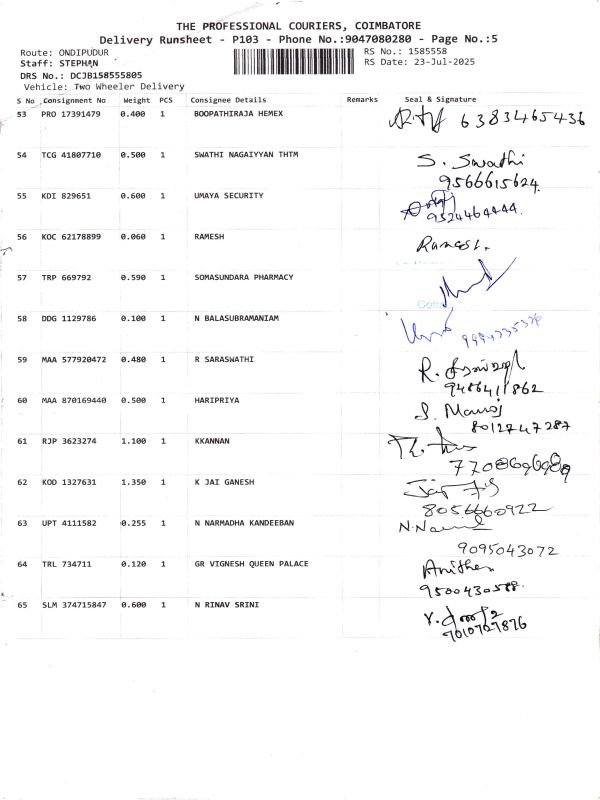 THE PROFESSIONAL COURIERS, COIMBATORE
Delivery Runsheet - P103 - Phone No.:9047080280 - Page No.:5
Route: ONDIPUDUR
RS No.: 1585558
Staff: STEPHAN
RS Date: 23-Jul-2025
DRS No.: DCJB158555805
Vehicle: Two Wheeler Delivery
S No Consignment No Weight PCS Consignee Details Remarks Seal & Signature
53 PRO 17391479 0.400 1 BOOPATHIRAJA HEMEX 6383465436
54 TCG 41807710 0.500 1 SWATHI NAGAIYYAN THTM S. Swathi
9566615624
55 KDI 829651 0.600 1 UMAYA SECURITY
9524464444.
56 KOC 62178899 0.060 1 RAMESH Ramesh.
57 TRP 669792 0.590 1 SOMASUNDARA PHARMACY
58 DDG 1129786 0.100 1 N BALASUBRAMANIAM
59 MAA 577920472 0.480 1 R SARASWATHI R.
9486411862
60 MAA 870169440 0.500 1 HARIPRIYA S. Manoj
8012747287
61 RJP 3623274 1.100 1 KKANNAN
62 KOD 1327631 1.350 1 K JAI GANESH
8056660922
63 UPT 4111582 0.255 1 N NARMADHA KANDEEBAN
9095043072
64 TRL 734711 0.120 1 GR VIGNESH QUEEN PALACE Anitha
9500430588.
65 SLM 374715847 0.600 1 N RINAV SRINI
7010707876